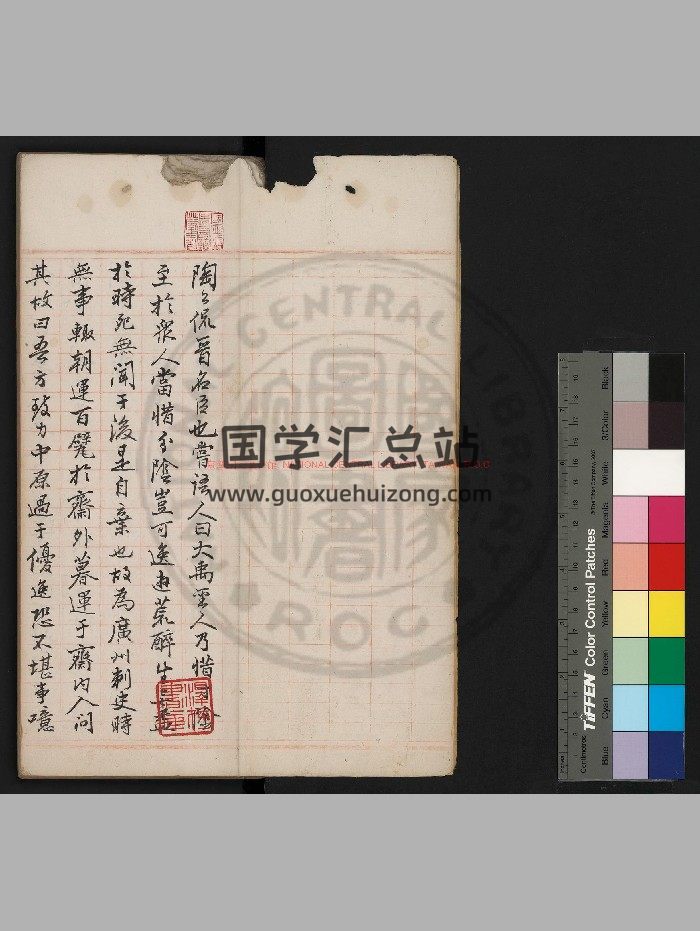 陶公侃晉名臣也嘗語人曰大禹聖人乃惜陰
至於衆人當惜分陰豈可逸遊荒醉生無益
於時死無聞于後是自棄也故為廣州刺史時
無事輙朝運百甓於齋外暮運于齋内人问
其故曰吾方致力中原過于優逸恐不堪事噫
国学汇总站
www.guoxuehuizong.com
NATIONAL CENTRAL LIBRARY
TIFFEN Color Control Patches
Centimetres
Blue
Cyan
Green
Yellow
Red
Magenta
White
3/Color
Black